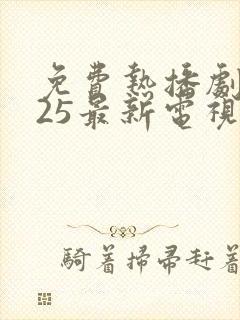 免費熱播劇
25最新電視
騎着掃帚赶着